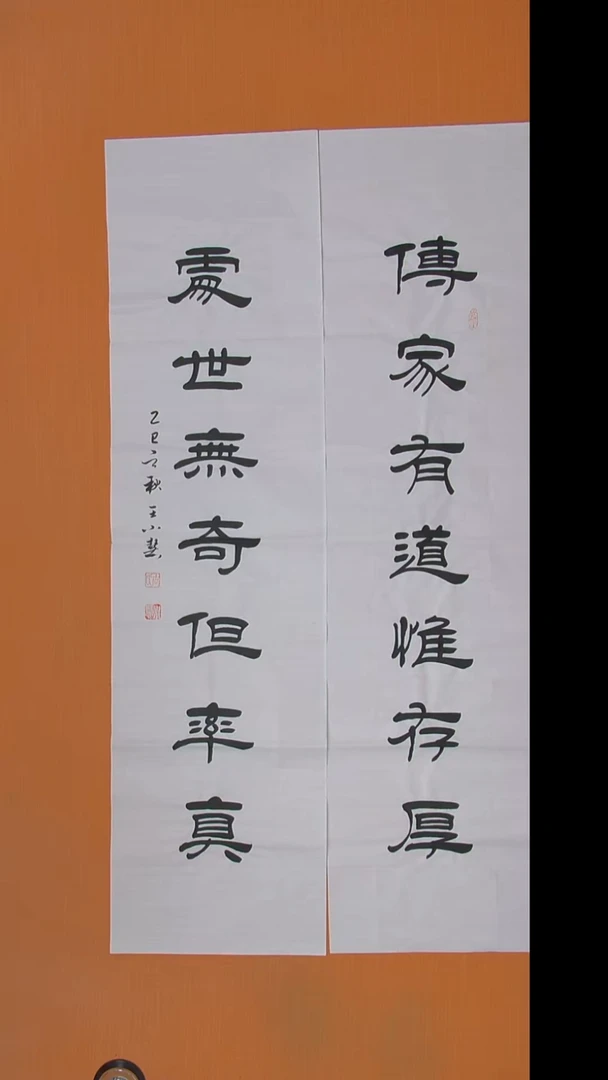 傳家有道惟存厚
處世無奇但率真
乙巳之秋王小燕